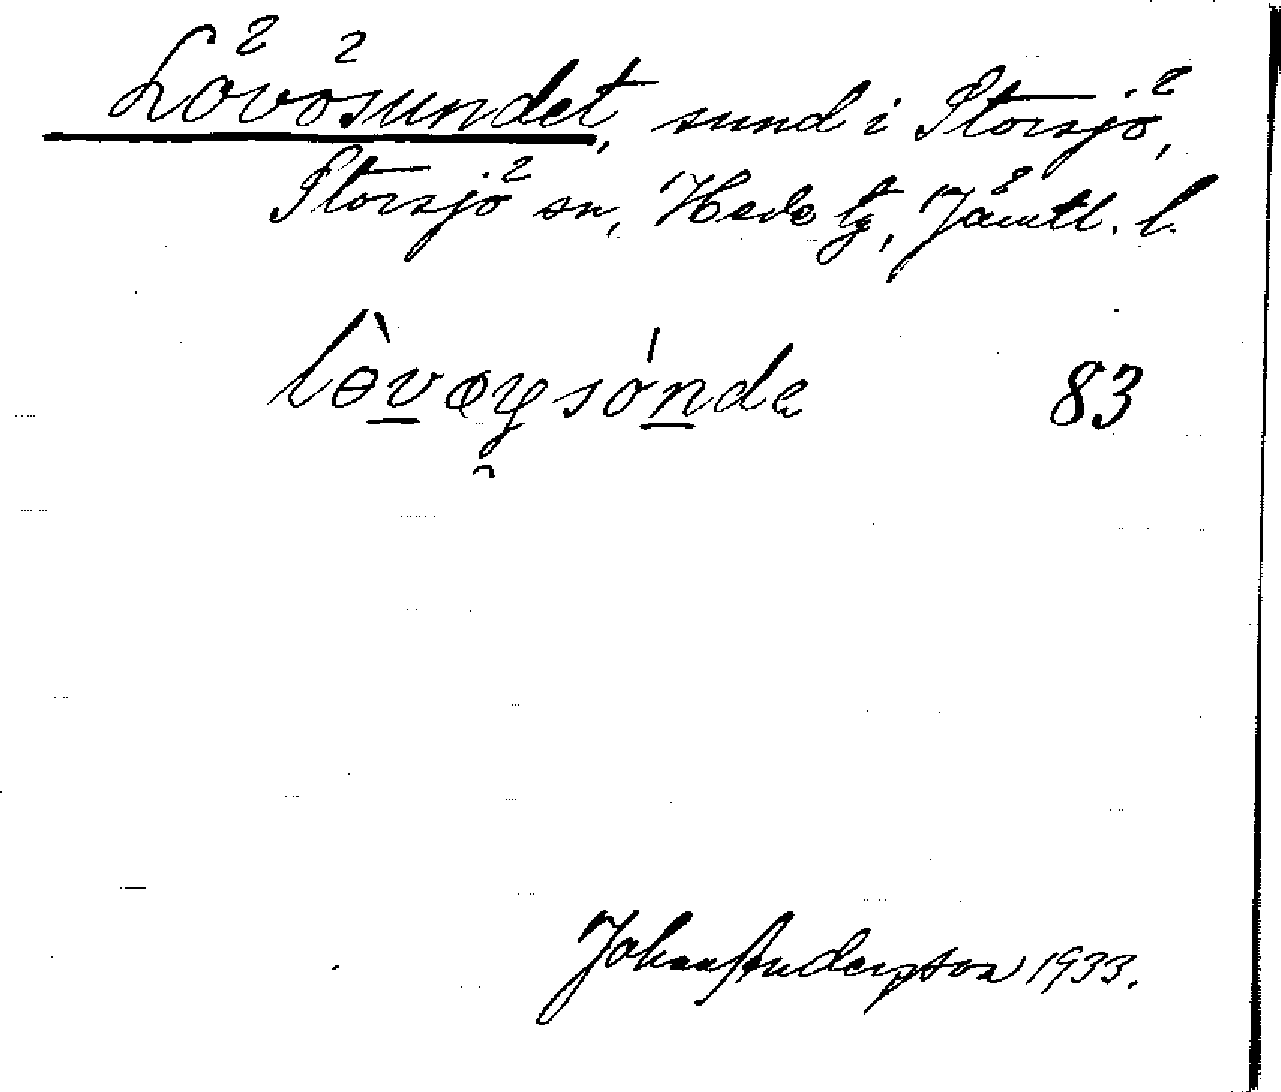 Lövösundet, sund i Storsjö,
Storsjö sn, Hede tg, Jämtl. l.
83
Johan Anderson 1933.